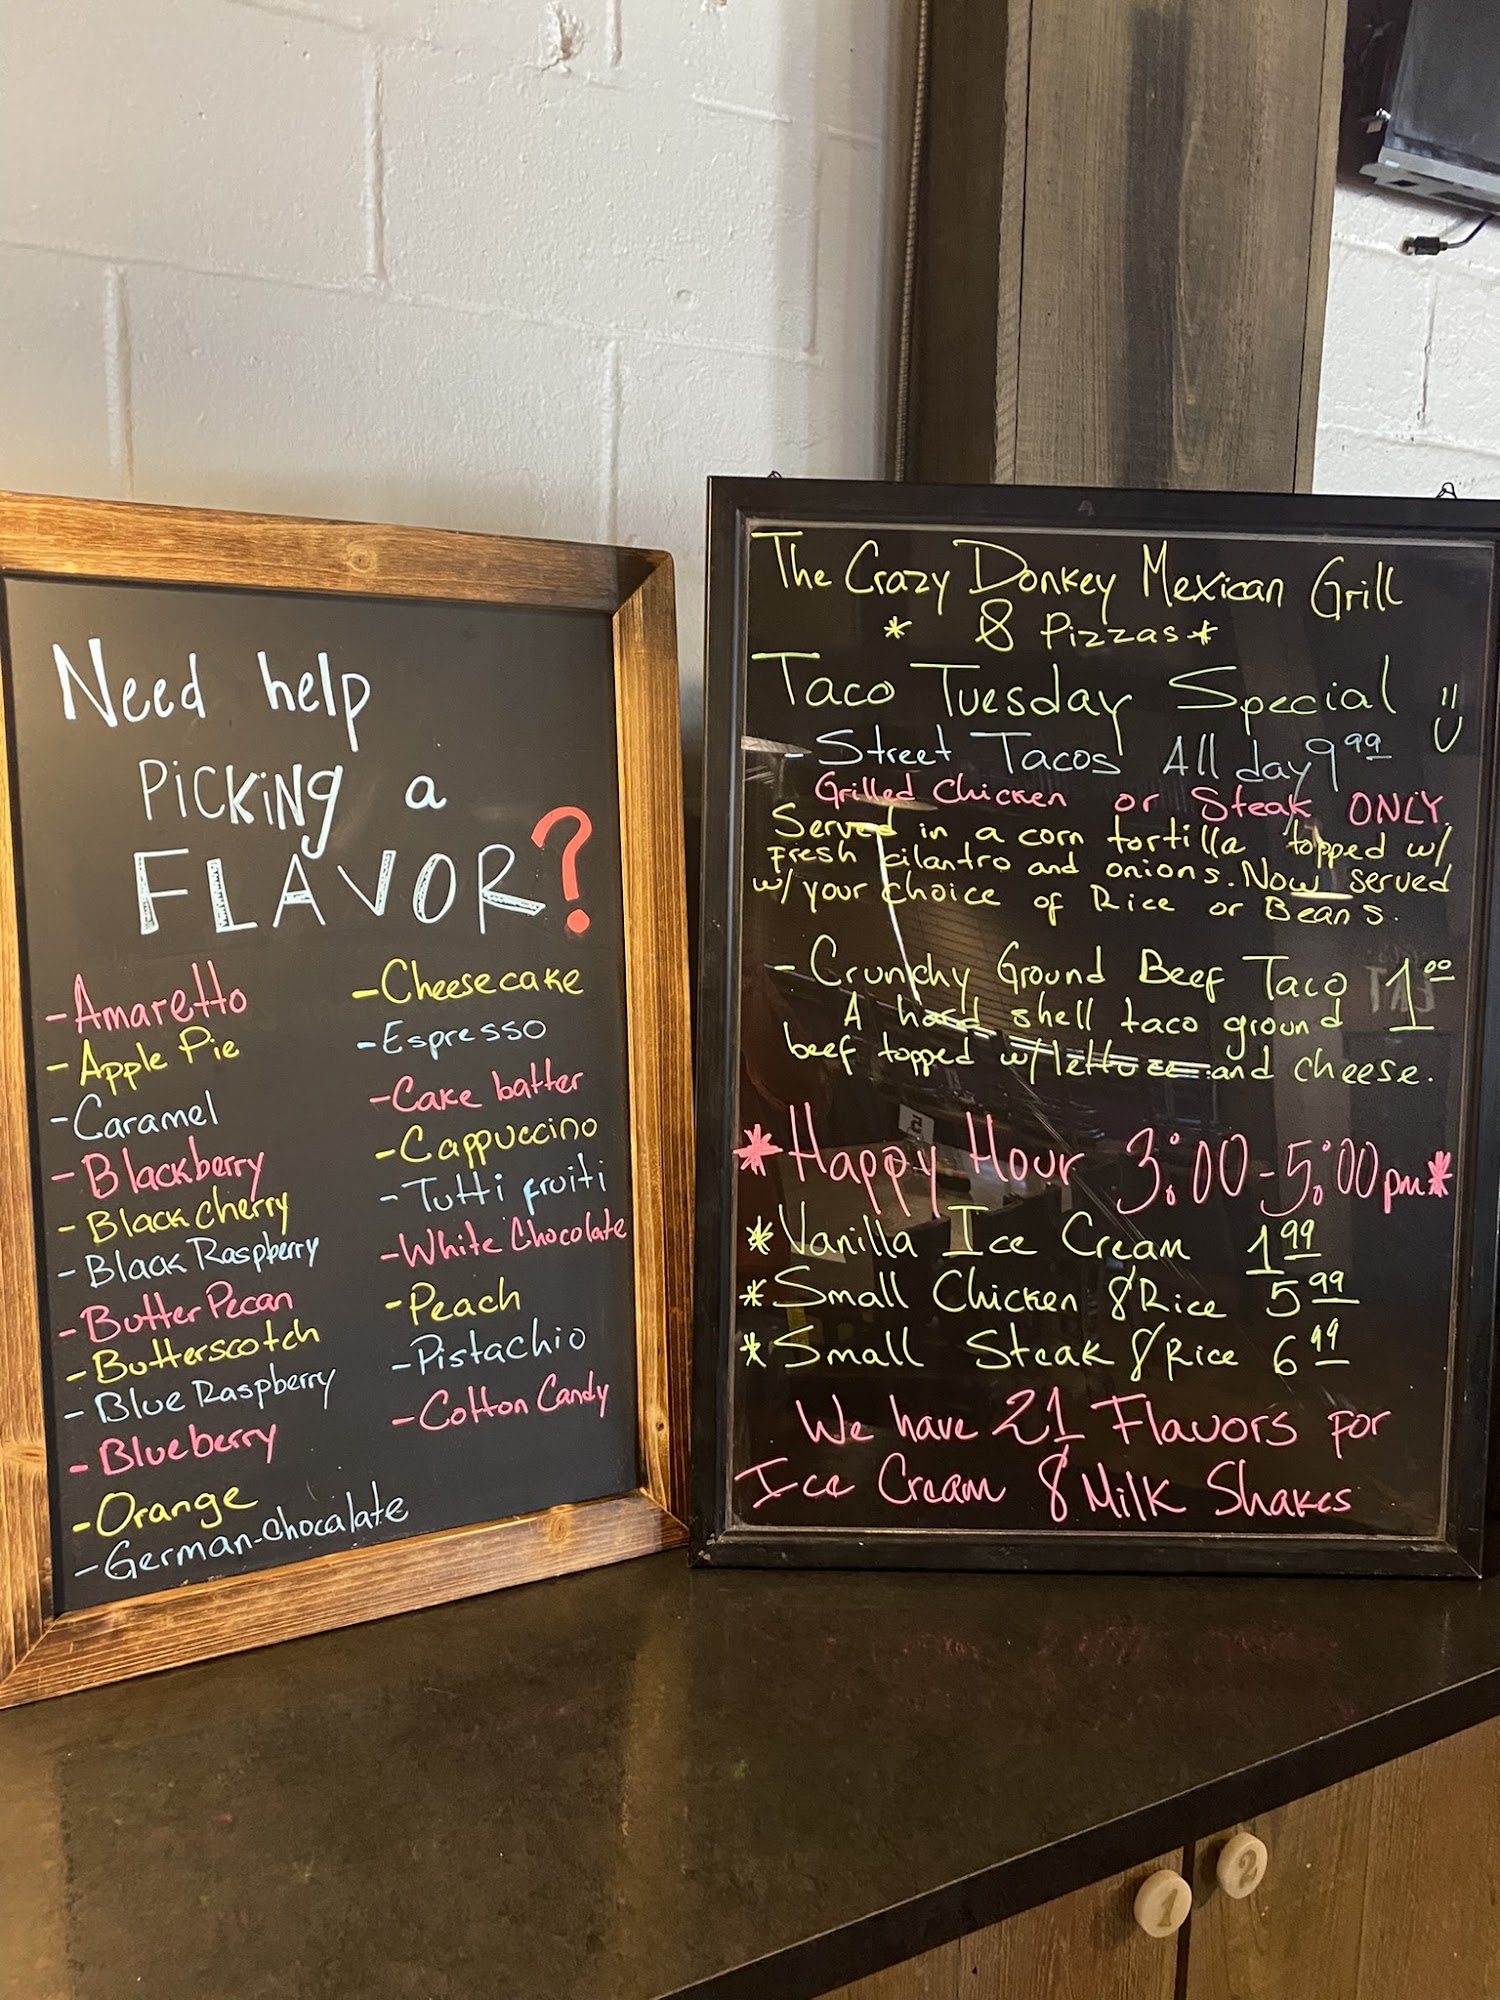 Need help
PiCKiNg a
FLAVOR?
-Amaretto
-Apple Pie
-Caramel
-Blackberry
-Black cherry
-Black Raspberry
-Butter Pecan
-Butterscotch
-Blue Raspberry
-Blueberry
-Orange
-German-Chocalate
-Cheesecake
-Espresso
-Cake batter
-Cappuccino
-Tutti fruiti
-White Chocolate
-Peach
-Pistachio
-Cotton Candy
The Crazy Donkey Mexican Grill
* & Pizzas *
Taco Tuesday Special
- Street Tacos All day 9.99
Grilled Chicken or Steak ONLY.
Served in a corn tortilla topped w/
Fresh cilantro and onions. Now served
w/ your choice of Rice or Beans.
- Crunchy Ground Beef Taco 1.00
A hard shell taco ground
beef topped w/ lettuce and cheese.
* Happy Hour 3:00-5:00pm *
* Vanilla Ice Cream 1.99
* Small Chicken & Rice 5.99
* Small Steak & Rice 6.99
We have 21 Flavors for
Ice Cream & Milk Shakes
1
2